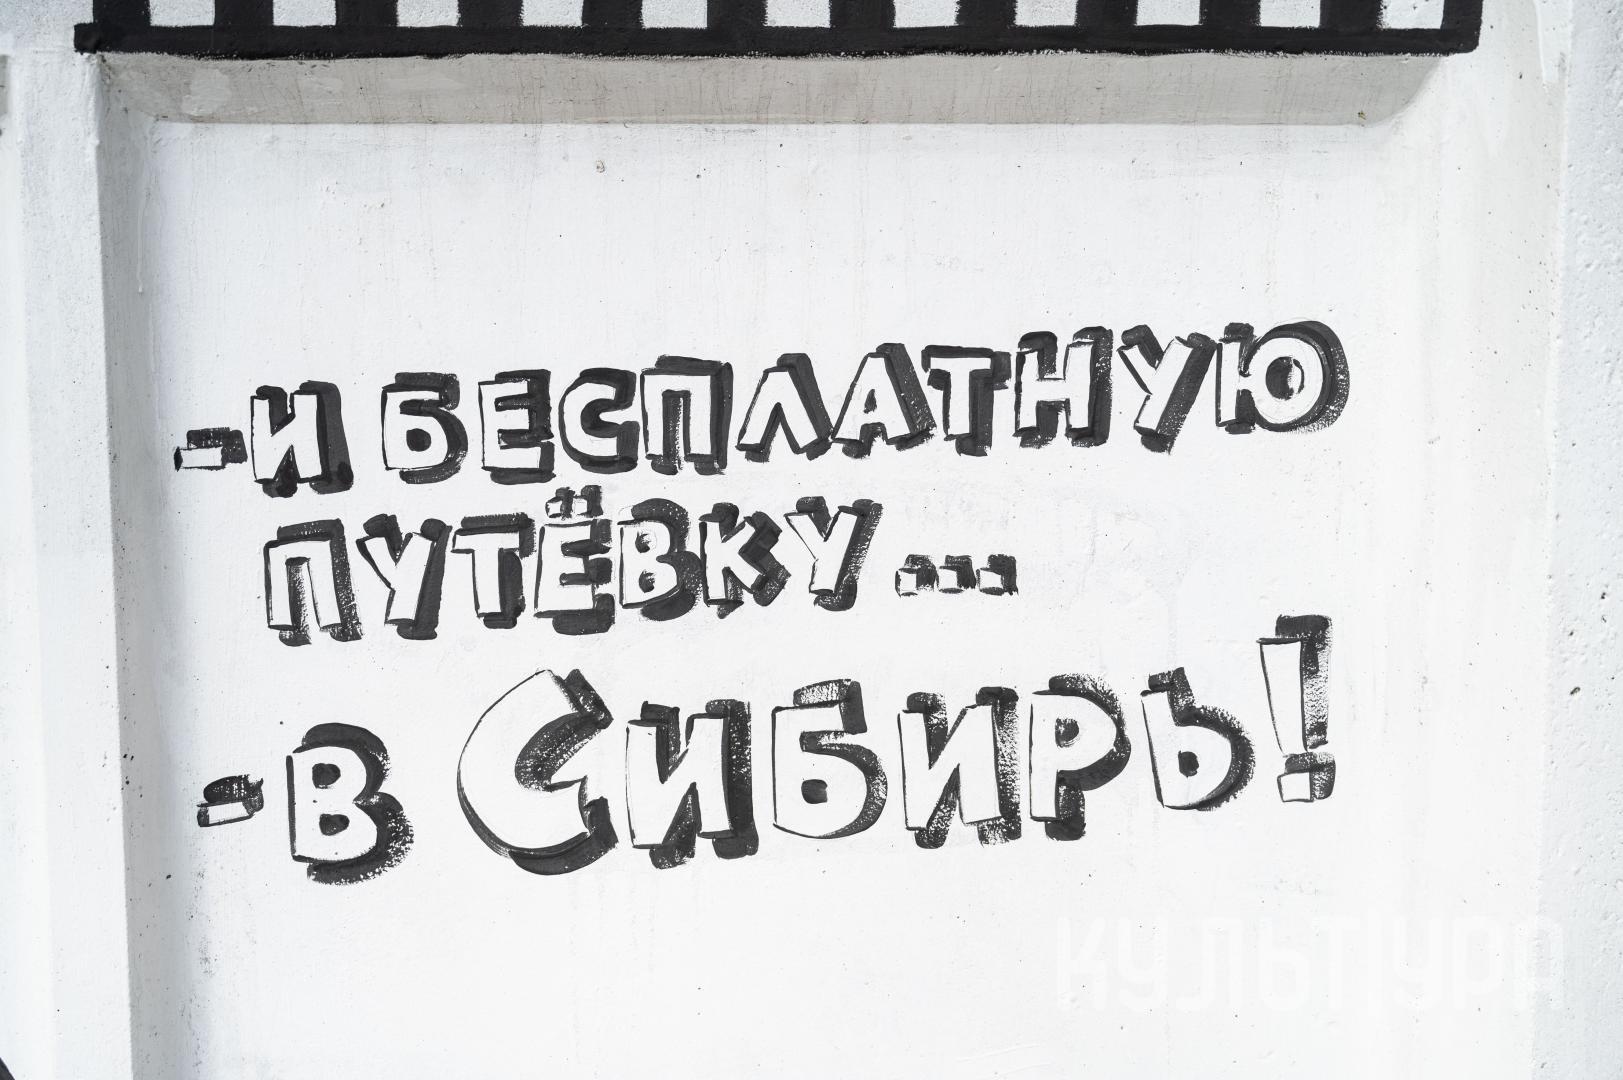 -И БЕСПЛАТНУЮ
ПУТЁВКУ...
-В СИБИРЬ!
КУЛЬТУРА